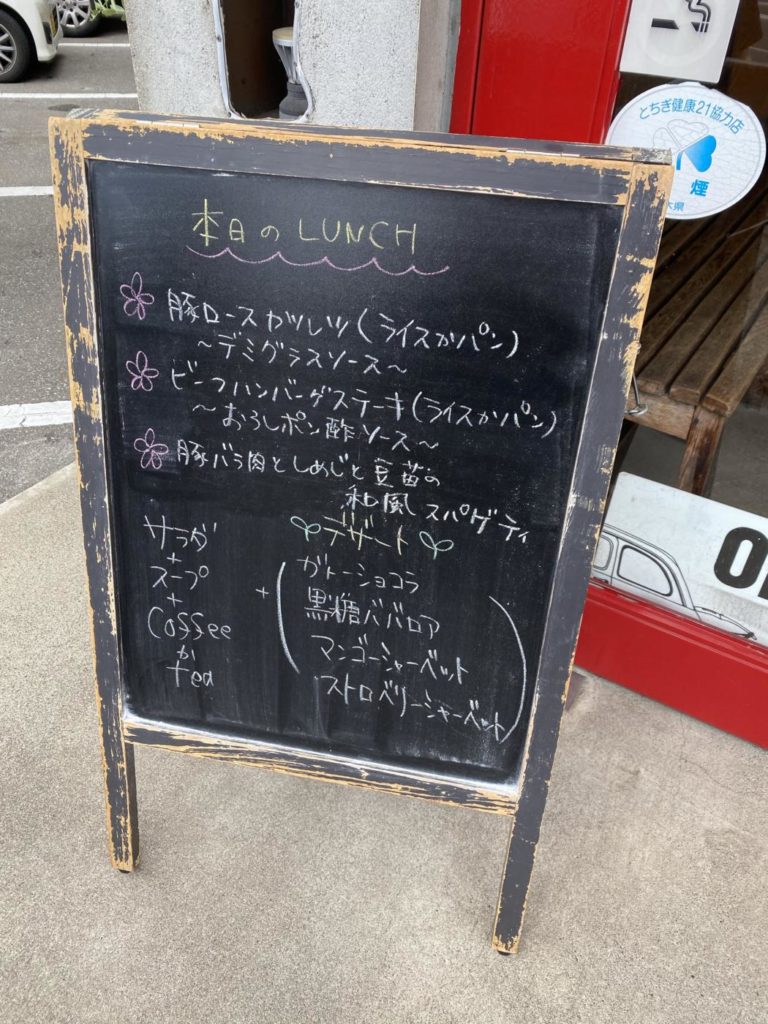 本日の LUNCH
豚ロースカツレツ(ライスかパン)
～デミグラスソース～
ビーフハンバーグステーキ(ライスかパン)
～おろしポン酢ソース～
豚バラ肉としめじと豆苗の
和風スパゲティ
サラダ
+
スープ
+
Coffee
か
tea
+
デザート
ガトーショコラ
黒糖ババロア
マンゴーシャーベット
ストロベリーシャーベット
とちぎ健康21協力店
煙
木県